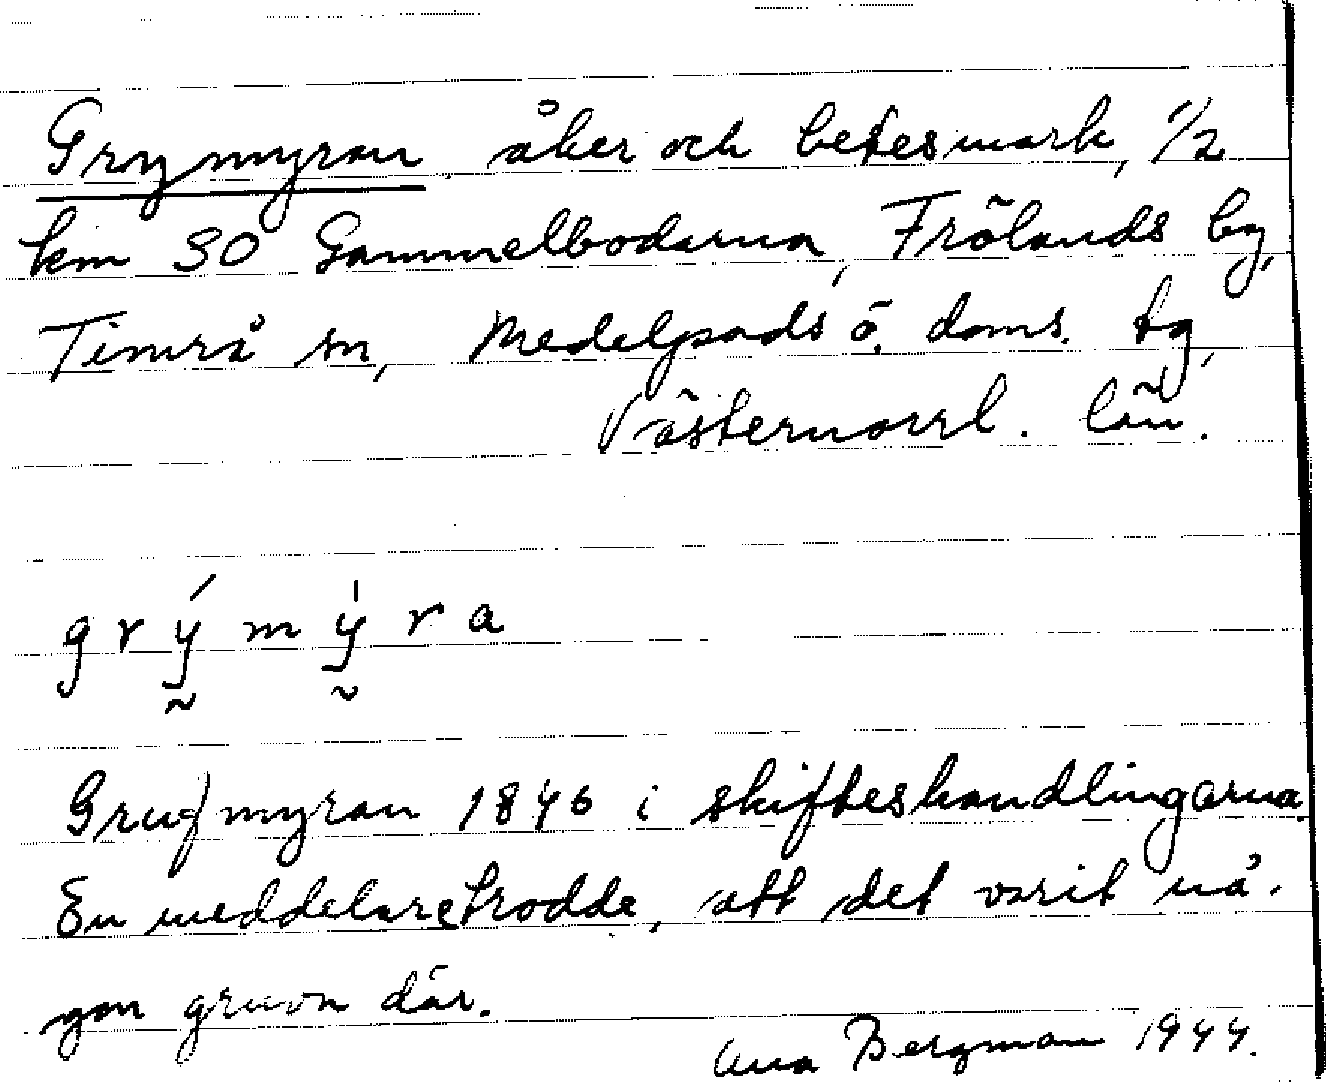 Grymyran åker och betesmark, 1/2
km SO Gammelbodarna, Frölands by,
Timrå sn, Medelpads ö. doms. tg,
Västernorrl. län.
grýmýra
Grufmyran 1846 i skifteshandlingarna.
En meddelare trodde, att det varit nå-
gon gruva där.
Ana Bergman 1944.